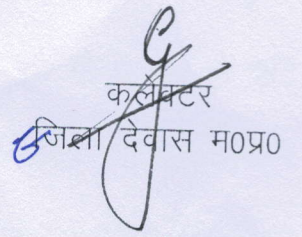 कलेक्टर
जिला देवास म0प्र0